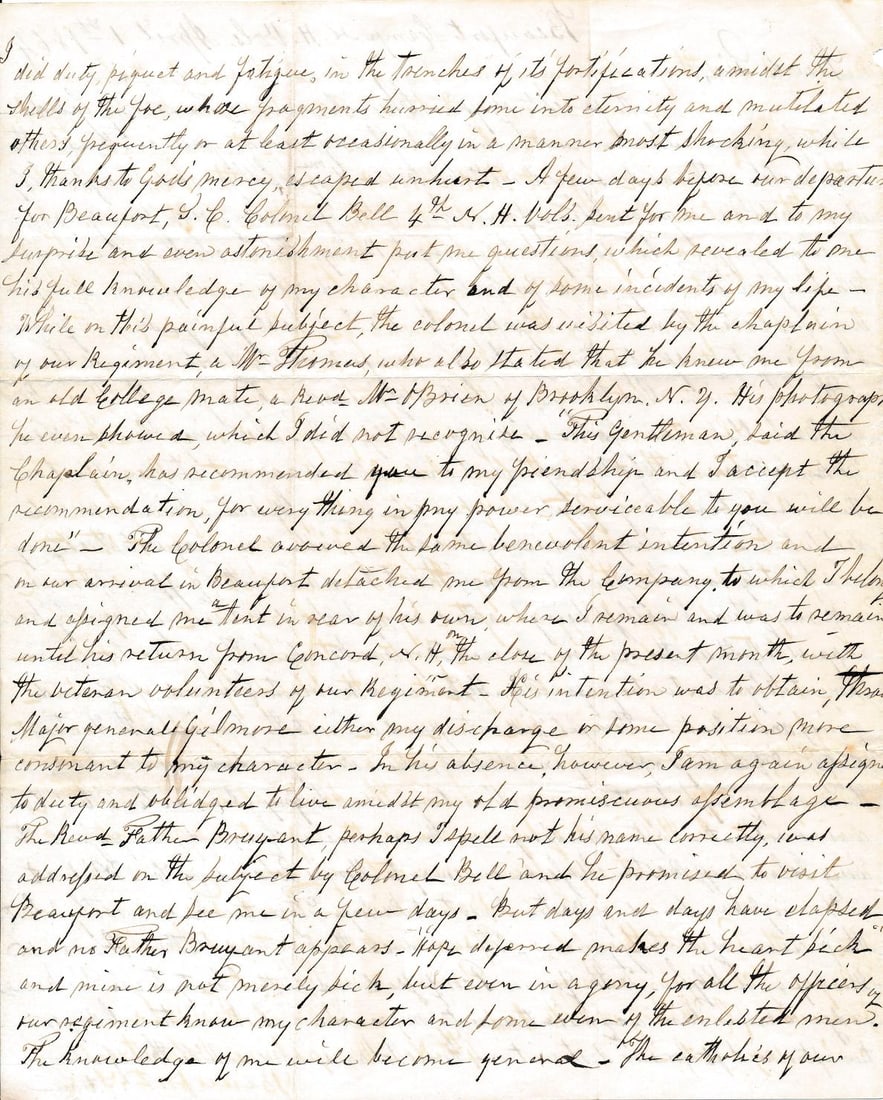 I
did duty, piquet and fatigue, in the trenches of its fortifications, amidst the
shells of the foe, whose fragments hurried some into eternity and mutilated
others, frequently or at least occasionally in a manner most shocking, while
I, thanks to God's mercy, escaped unhurt – A few days before our departur
for Beaufort, S. C. Colonel Bell 4th N. H. Vols. sent for me and to my
surprise and even astonishment put me questions, which revealed to me
his full knowledge of my character and of some incidents of my life –
While on this painful subject, the colonel was visited by the chaplain
of our Regiment, a Mr Thomas, who also stated that he knew me from
an old College mate, a Revd Mr OBrien of Brooklyn. N. Y. His photograph
he even showed, which I did not recognise – "This Gentleman, said the
Chaplain, has recommended you to my friendship and I accept the
recommendation, for every thing in my power, serviceable to you will be
done" – The Colonel avowed the same benevolent intention and
on our arrival in Beaufort detached me from the Company, to which I belong
and assigned me a tent in rear of his own, where I remain and was to remain
until his return from Concord, N. H, on the close of the present month, with
the veteran volunteers of our Regiment – His intention was to obtain, thro
Major general Gilmore either my discharge or some position more
consonant to my character – In his absence, however, I am again assigne
to duty and oblidged to live amidst my old promiscuous assemblage –
The Revd Father Bruyant, perhaps I spell not his name correctly, was
addressed on the subject by Colonel Bell and he promised to visit
Beaufort and see me in a few days – But days and days have elapsed
and no Father Bruyant appears – "Hope deferred makes the heart sick"
and mine is not merely sick, but even in agony, for all the officers of
our regiment know my character and some even of the enlisted men.
The knowledge of me will become general – The catholics of our